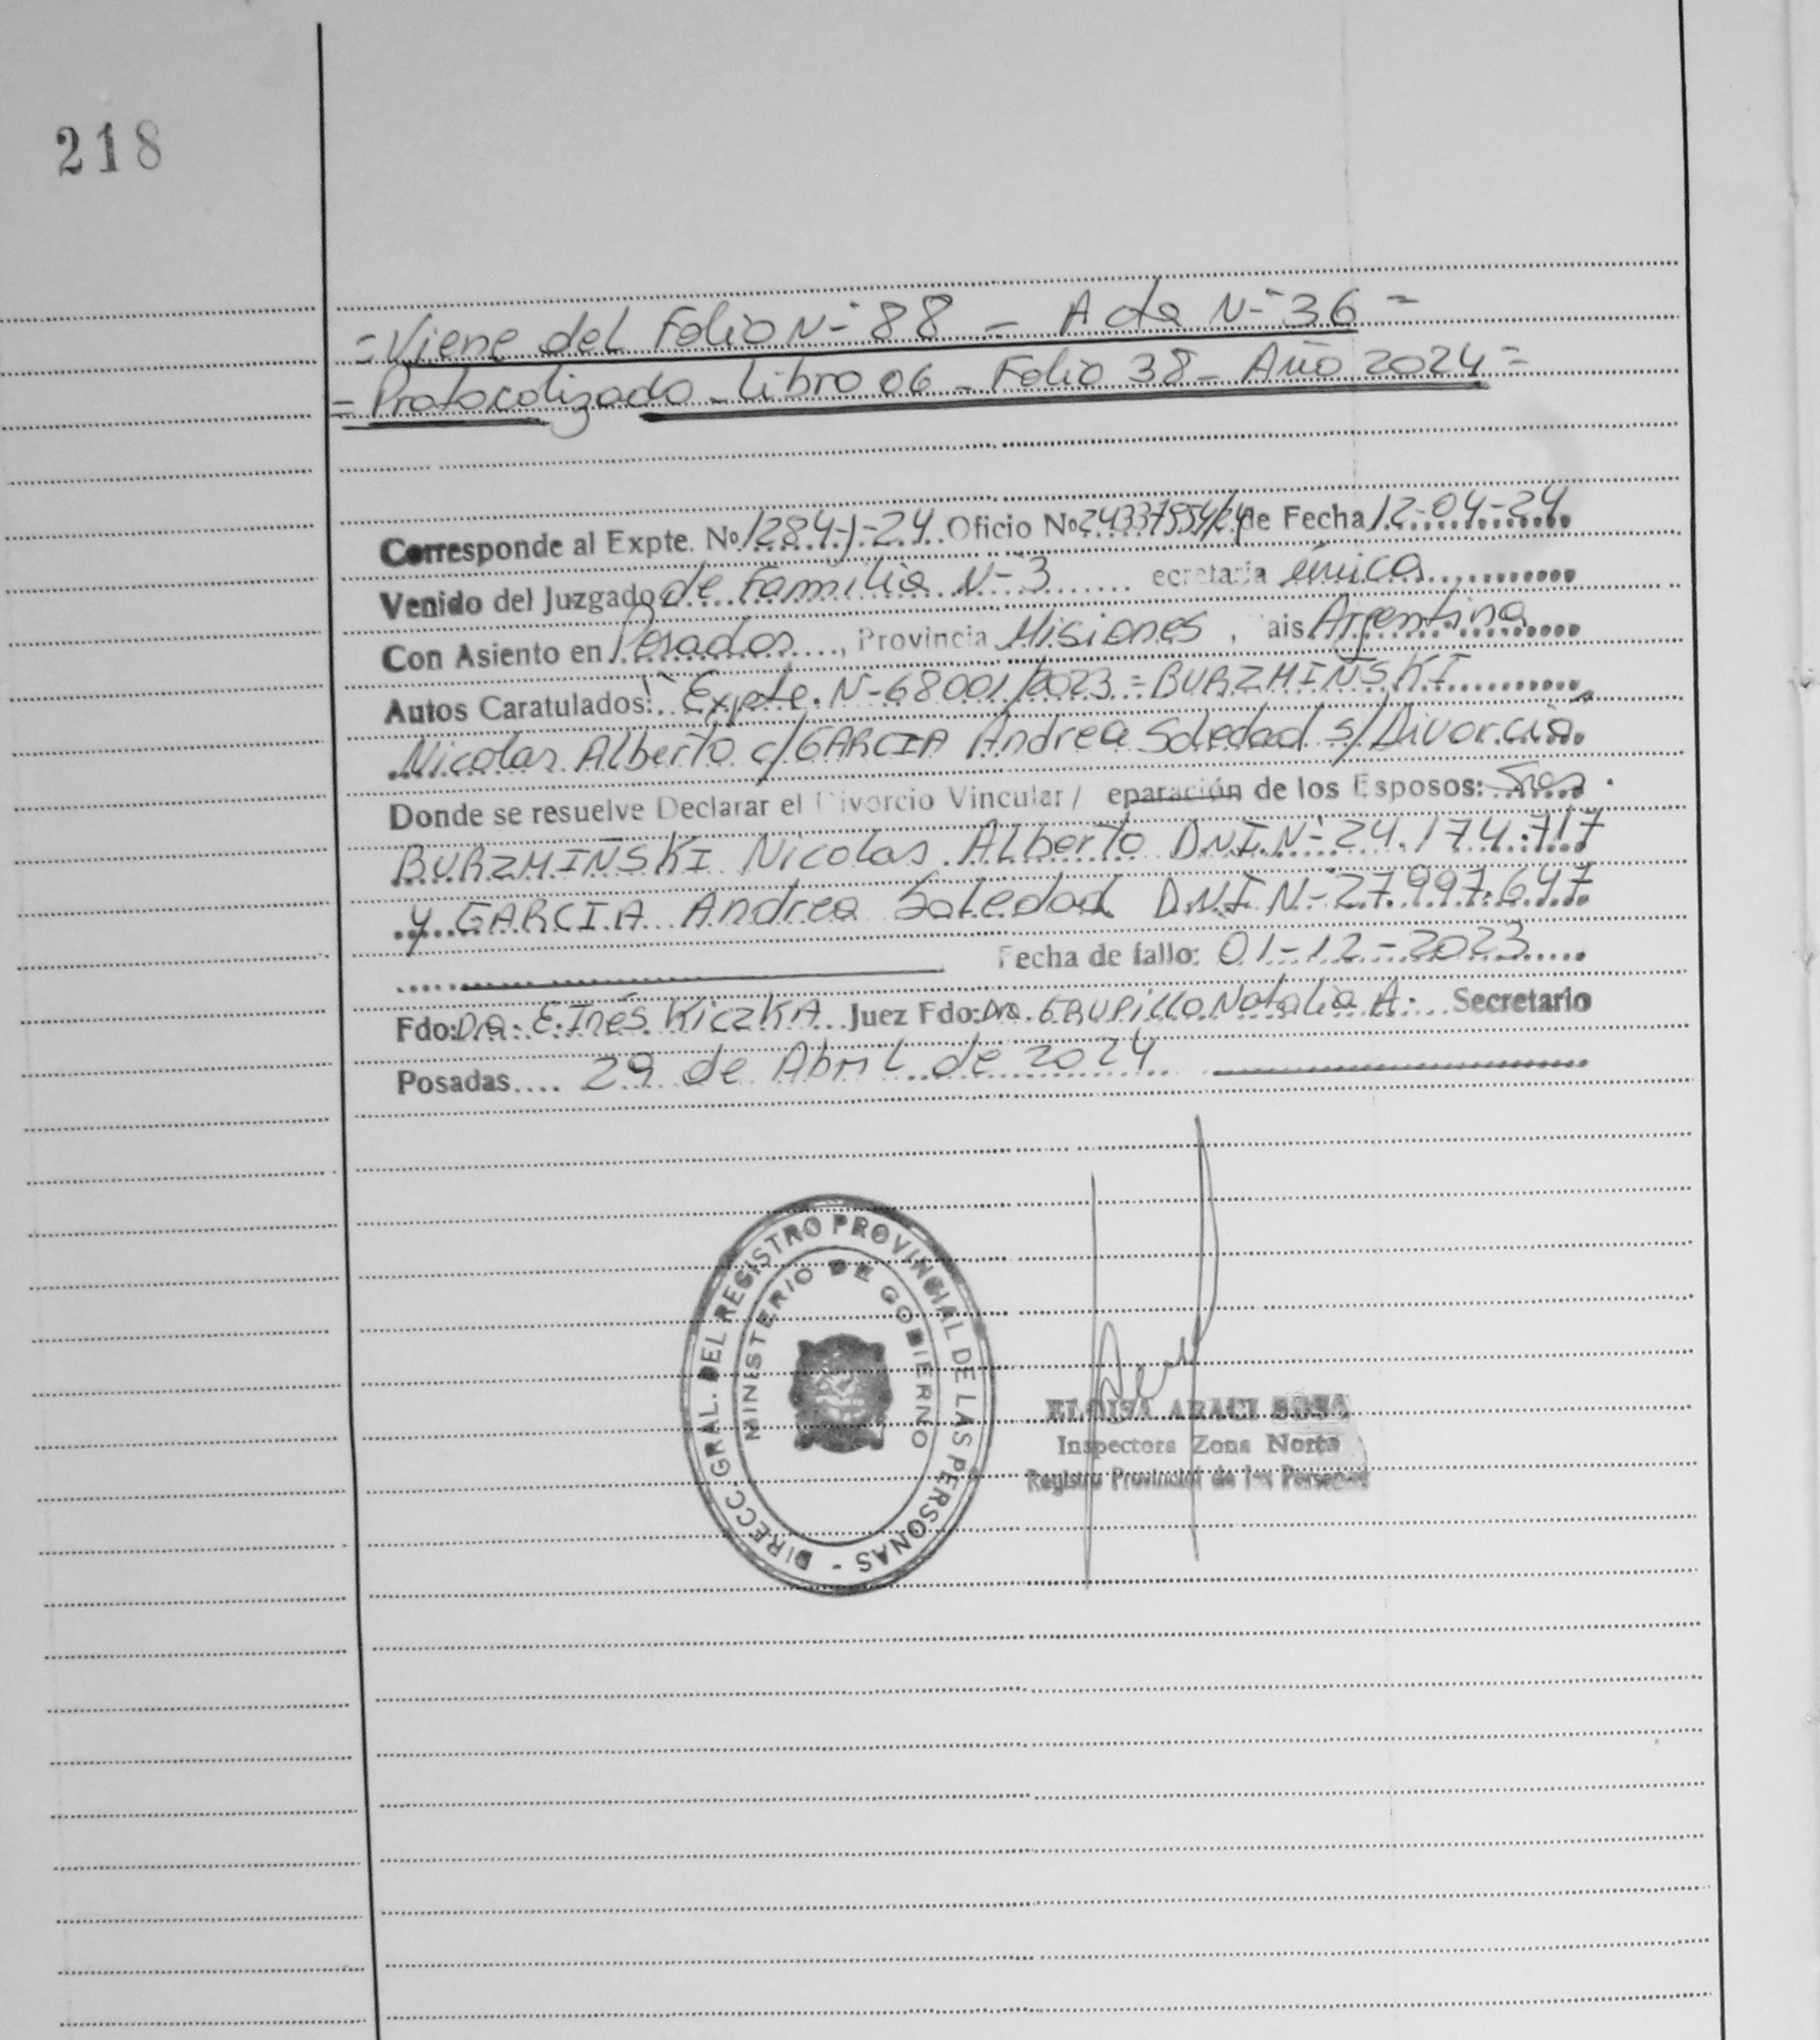 218
=Viene del Folio N- 88 - Acta N- 36=
=Protocolizado - Libro 06 - Folio 38 - Año 2024=
Corresponde al Expte. Nº 1284-J-24 Oficio Nº 24337954/24 de Fecha 12-04-24
Venido del Juzgado de Familia N-3 ecretaria única
Con Asiento en Posadas, Provincia Misiones, ais Argentina
Autos Caratulados: "Expte. N-68001/2023=BURZMIÑSKI
Nicolas Alberto c/GARCIA Andrea Soledad s/Divorcio"
Donde se resuelve Declarar el Divorcio Vincular/ eparación de los Esposos: Sres.
BURZMIÑSKI Nicolas Alberto D.N.I.N- 24.174.717
y GARCIA Andrea Soledad D.N.I N- 27.997.647
Fecha de fallo: 01-12-2023
Fdo: Dra. E. Inés KiczKA Juez Fdo: Dra. Natalia A. Secretario
Posadas.... 29 de Abril de 2024
DIRECC. GRAL. DEL REGISTRO PROVINCIAL DE LAS PERSONAS -
MINISTERIO DE GOBIERNO
ELOISA ARACI SOSA
Inspectora Zona Norte
Registro Provincial de las Personas